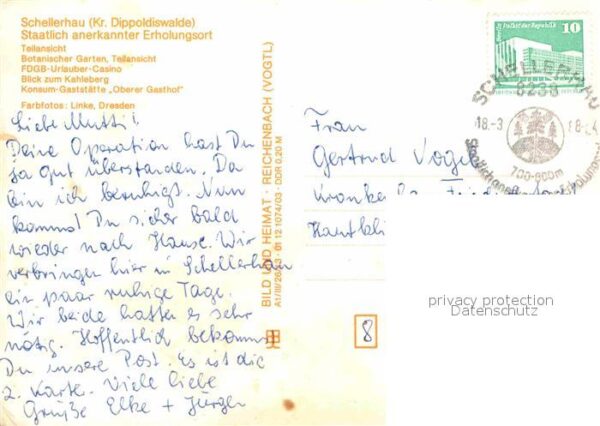 Schellerhau (Kr. Dippoldiswalde)
Staatlich anerkannter Erholungsort
Teilansicht
Botanischer Garten, Teilansicht
FDGB-Urlauber-Casino
Blick zum Kahleberg
Konsum-Gaststätte „Oberer Gasthof"
Farbfotos: Linke, Dresden
Liebe Mutti!
Deine Operation hast Du
ja gut überstanden. Da
bin ich beruhigt. Nun
kommst Du sicher bald
wieder nach Hause. Wir
verbringen hier in Schellerhau
ein paar ruhige Tage.
Wir beide hatten es sehr
nötig. Hoffentlich bekommst
Du unsere Post. Es ist die
2. Karte. Viele liebe
Grüße Elke + Jürgen
BILD UND HEIMAT · REICHENBACH (VOGTL)
01 12 1074/03 · DDR 0,20 M
Frau
Gertrud Vogel
Hautkli
10
SCHELLERHAU
8238
18.-3
700-800m
Staatlich anerk. Erholungsort
privacy protection
Datenschutz
8